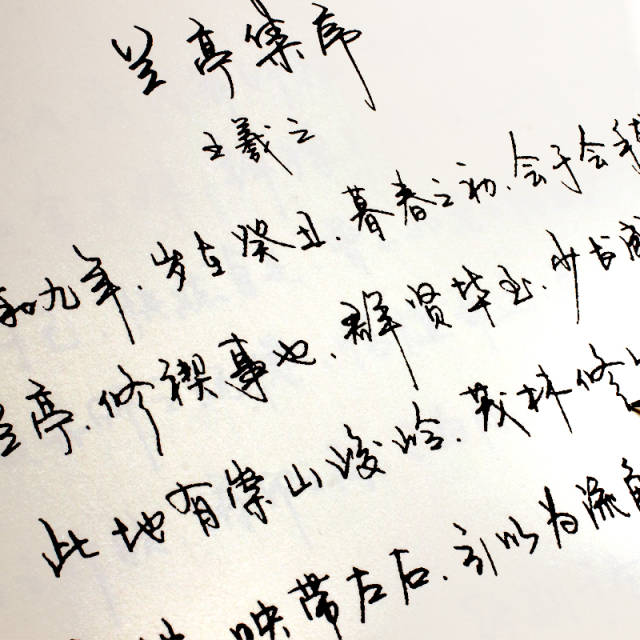 兰亭集序
王羲之
和九年,岁在癸丑,暮春之初,会于会稽
兰亭,修禊事也,群贤毕至,少长咸
此地有崇山峻岭,茂林修竹
映带左右,引以为流觞